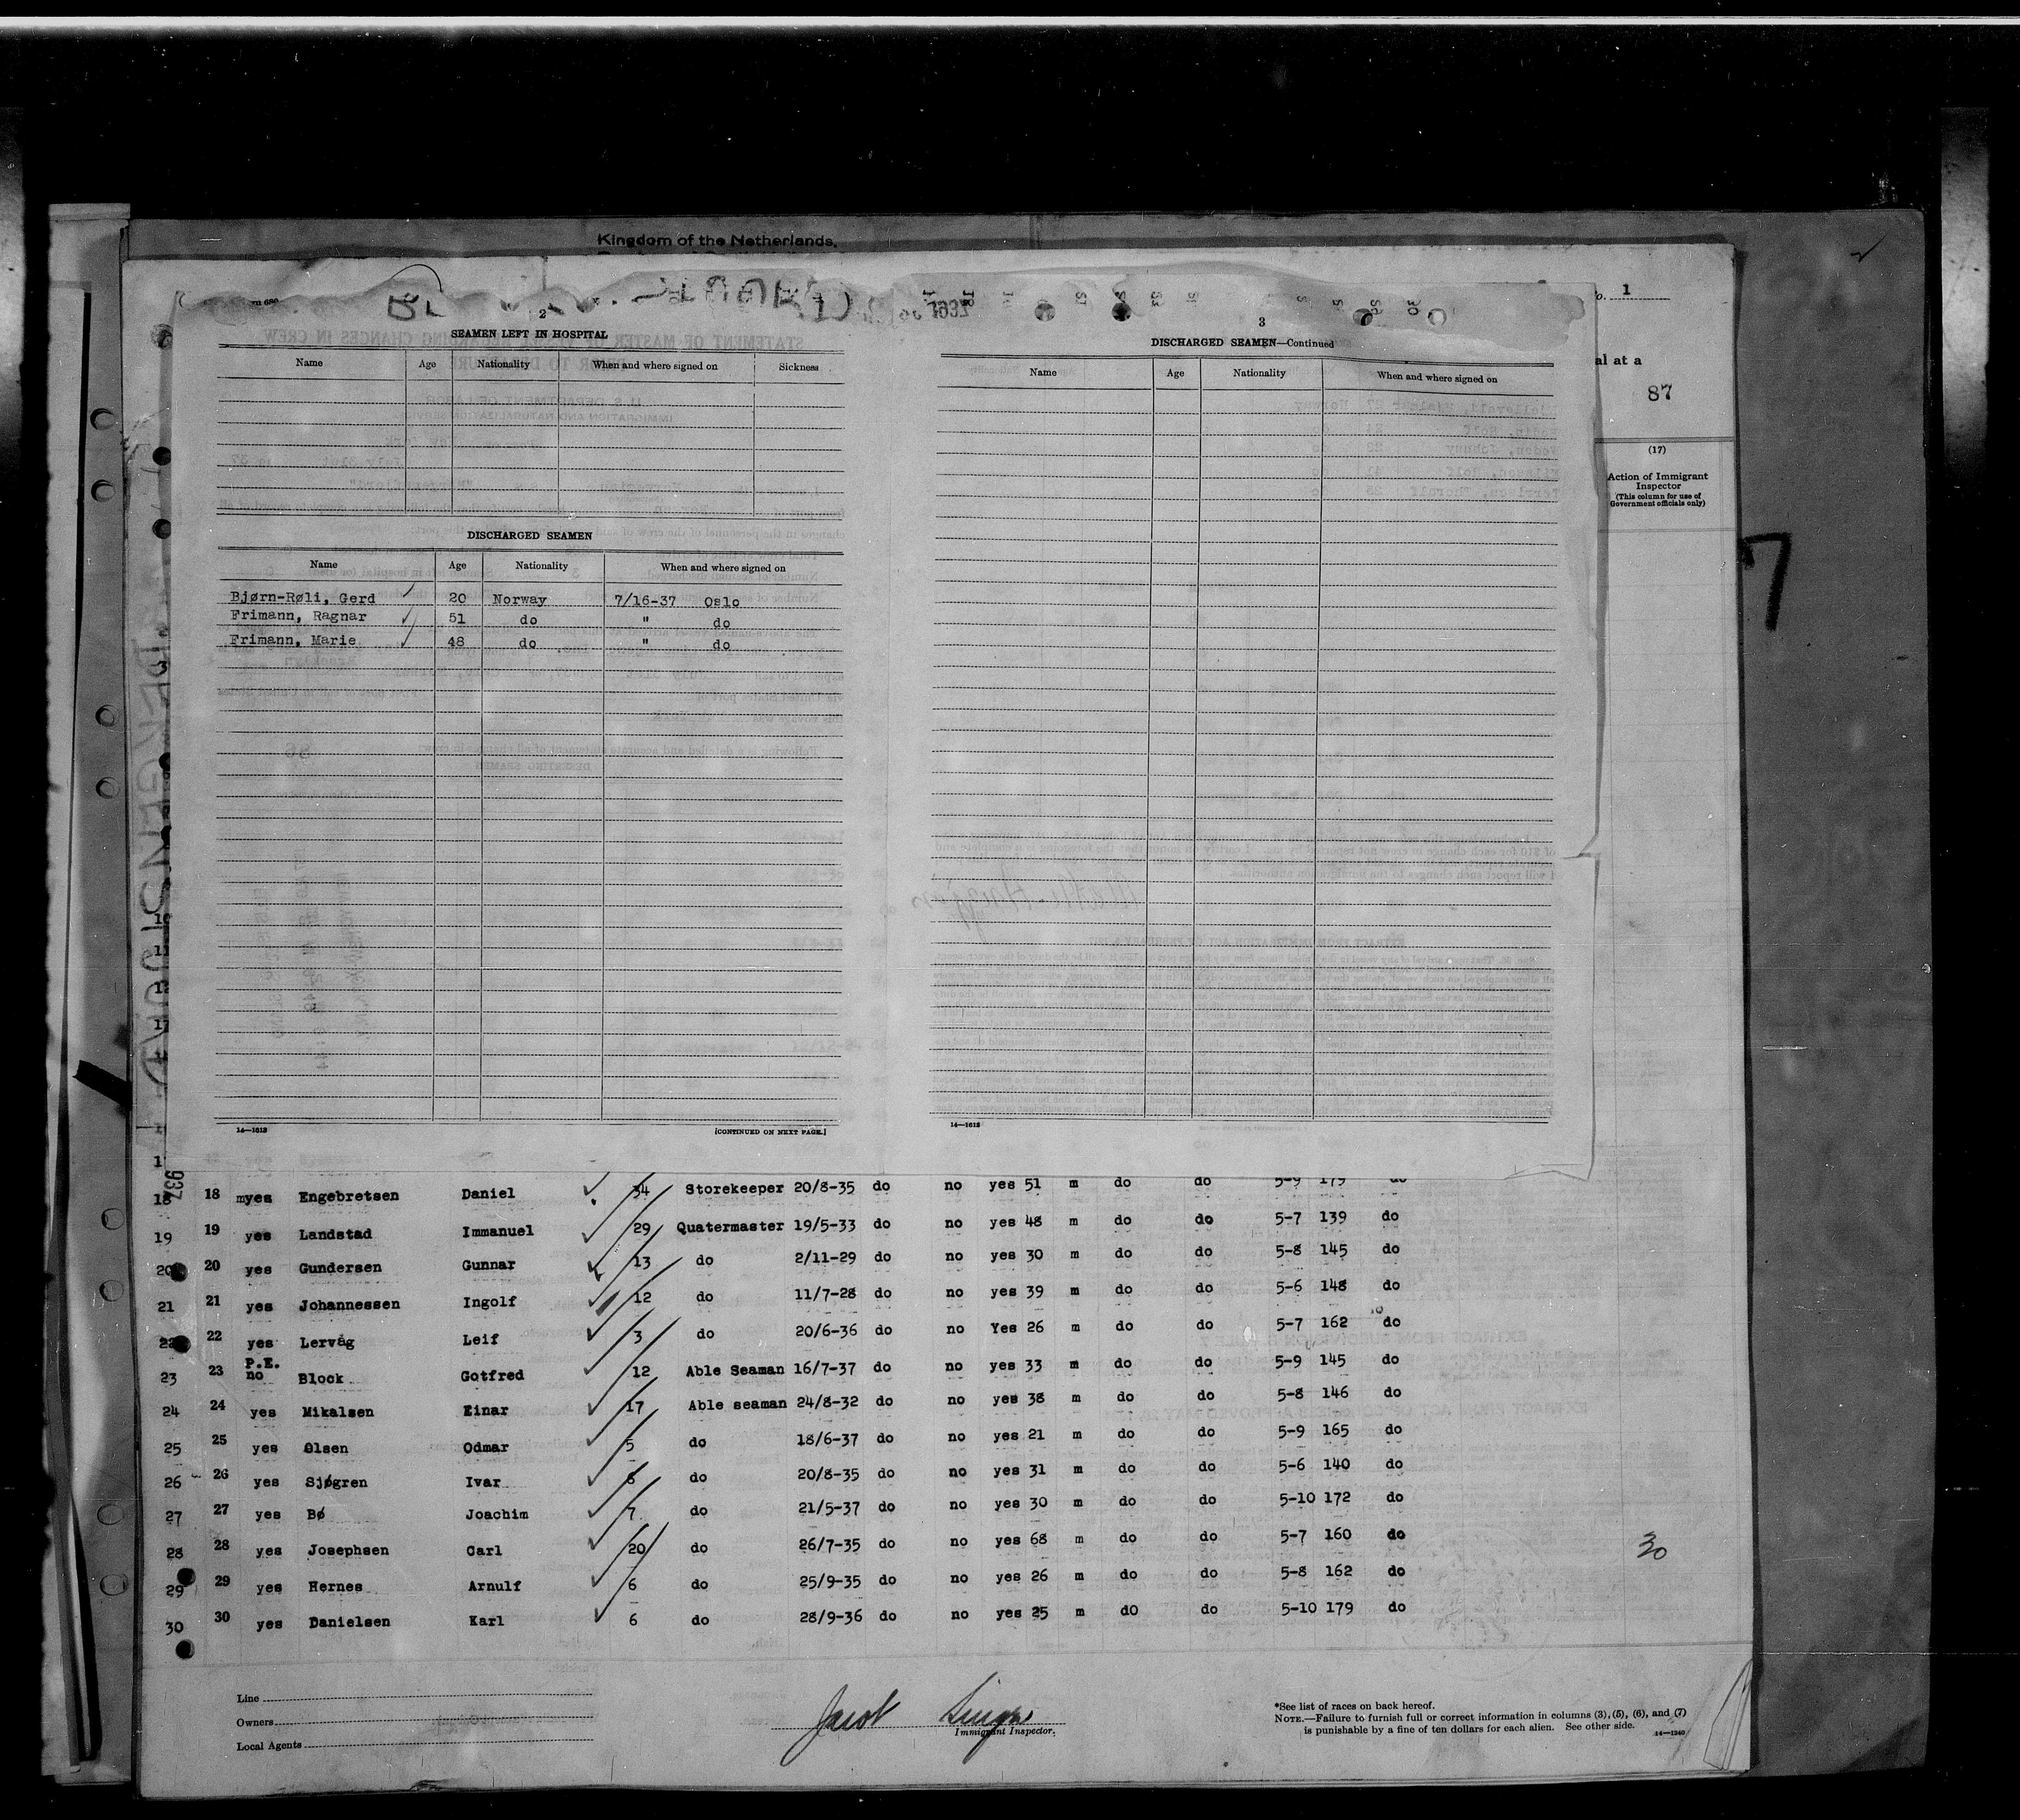 Kingdom of the Netherlands,
No. 1
al at a
87
(17)
Action of Immigrant
Inspector
(This column for use of
Government officials only)
2
SEAMEN LEFT IN HOSPITAL
Name Age Nationality When and where signed on Sickness
DISCHARGED SEAMEN
Name Age Nationality When and where signed on
Bjørn-Røli, Gerd 20 Norway 7/16-37 Oslo
Frimann, Ragnar 51 do " do
Frimann, Marie 48 do " do
14—1613 [CONTINUED ON NEXT PAGE.]
3
DISCHARGED SEAMEN—Continued
Name Age Nationality When and where signed on
14—1613
18 18 myes Engebretsen Daniel 34 Storekeeper 20/8-35 do no yes 51 m do do 5-9 179 do
19 19 yes Landstad Immanuel 29 Quatermaster 19/5-33 do no yes 48 m do do 5-7 139 do
20 20 yes Gundersen Gunnar 13 do 2/11-29 do no yes 30 m do do 5-8 145 do
21 21 yes Johannessen Ingolf 12 do 11/7-28 do no yes 39 m do do 5-6 148 do
22 22 yes Lervåg Leif 3 do 20/6-36 do no Yes 26 m do do 5-7 162 do
P.E.
23 23 no Block Gotfred 12 Able Seaman 16/7-37 do no yes 33 m do do 5-9 145 do
24 24 yes Mikalsen Einar 17 Able seaman 24/8-32 do no yes 38 m do do 5-8 146 do
25 25 yes Olsen Odmar 5 do 18/6-37 do no yes 21 m do do 5-9 165 do
26 26 yes Sjøgren Ivar 8 do 20/8-35 do no yes 31 m do do 5-6 140 do
27 27 yes Bø Joachim 7 do 21/5-37 do no yes 30 m do do 5-10 172 do
28 28 yes Josephsen Carl 20 do 26/7-35 do no yes 68 m do do 5-7 160 do
30
29 29 yes Hernes Arnulf 6 do 25/9-35 do no yes 26 m do do 5-8 162 do
30 30 yes Danielsen Karl 6 do 28/9-36 do no yes 25 m dO do 5-10 179 do
Line
Owners
Local Agents
Jacob
Immigrant Inspector.
*See list of races on back hereof.
NOTE.—Failure to furnish full or correct information in columns (3), (5), (6), and (7)
is punishable by a fine of ten dollars for each alien. See other side.
14—1240